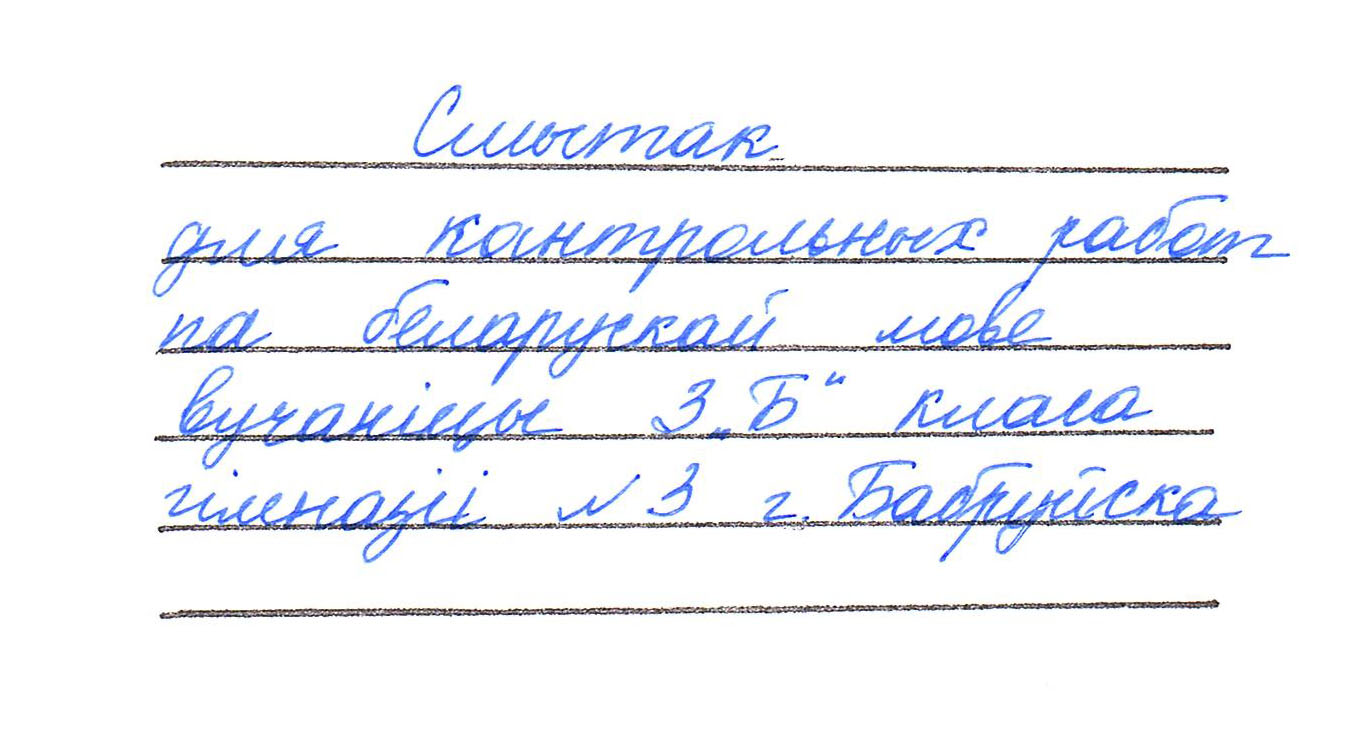 Сшытак
для кантрольных работ
па беларускай мове
вучаніцы 3 „Б“ класа
гімназіі № 3 г. Бабруйска